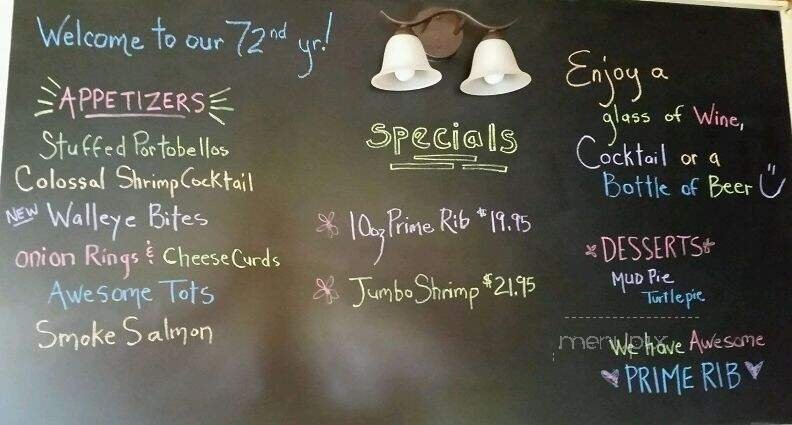 Welcome to our 72nd yr!
APPETIZERS
Stuffed Portobellos
Colossal Shrimp Cocktail
NEW Walleye Bites
Onion Rings & Cheese Curds
Awesome Tots
Smoke Salmon
Specials
10oz Prime Rib $19.95
Jumbo Shrimp $21.95
Enjoy a
glass of Wine,
Cocktail or a
Bottle of Beer
DESSERTS
MUD Pie
Turtle pie
We have Awesome
PRIME RIB
menupix